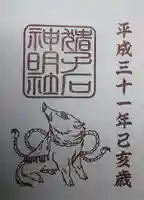 平成三十一年己亥歳
猪名
神明社